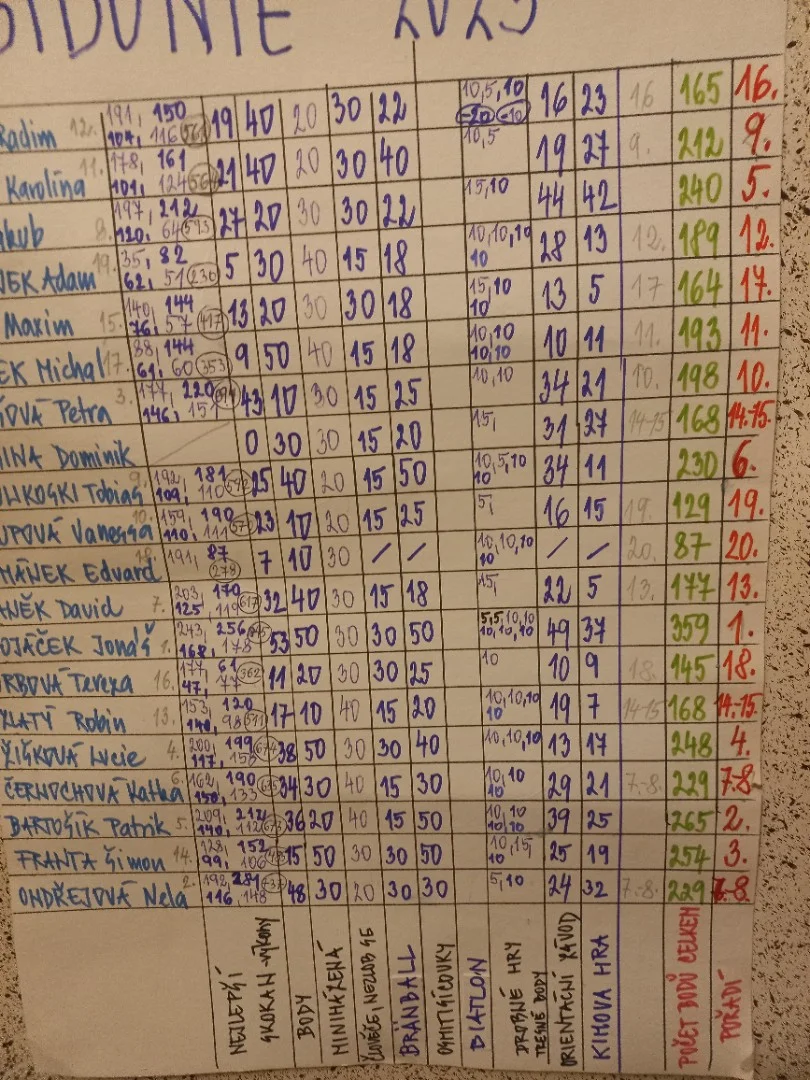 2023
Radim 12. 191, 150 19 40 20 30 22 10,5,10 16 23 16 165 16.
104, 116 561 -20 -10
Karolína 11. 178, 161 21 40 20 30 40 10,5 19 27 9. 212 9.
101, 124
8. 197, 212 27 20 30 30 22 15,10 44 42 240 5.
120, 64 593
Adam 19. 35, 82 5 30 40 15 18 10,10,10 28 13 12. 189 12.
62, 51 230 10
Maxim 15. 140, 144 13 20 30 30 18 15,10 13 5 17 164 17.
76, 57 417 10
Michal 17. 88, 144 9 50 40 15 18 10,10 10 11 11. 193 11.
61, 60 353 10,10
Petra 3. 177, 220 43 10 30 15 25 10,10 34 21 10. 198 10.
146,
Dominik 0 30 30 15 20 15, 31 27 14-15 168 14.-15.
Tobiáš 9. 192, 181 25 40 20 15 50 10,5,10 34 11 230 6.
109, 110 10
Vanessa 10. 159, 190 23 10 20 15 25 5, 16 15 19. 129 19.
110, 111
Eduard 18. 191, 87 7 10 30 / / 10,10,10 / / 20. 87 20.
278 10
David 7. 203, 170 32 40 30 15 18 15, 22 5 13. 177 13.
125, 119 617
Jonáš 1. 243, 256 53 50 30 30 50 5,5,10,10 49 37 359 1.
168, 178 10,10,10
Tereza 16. 177, 61 11 20 30 30 25 10 10 9 18. 145 18.
47, 77 362
ZLATÝ Robin 13. 153, 120 17 10 40 15 20 10,10,10 19 7 14-15 168 14.-15.
140, 98 511 10
ŽIŠKOVÁ Lucie 4. 200, 199 38 50 30 30 40 10,10,10 13 17 248 4.
117, 158 674
ČERNOCHOVÁ Katka 6. 162, 190 34 30 40 15 30 10,10 29 21 7.-8. 229 7.-8.
150, 133 10
BARTOŠÍK Patrik 5. 209, 212 36 20 40 15 50 10,10 39 25 265 2.
140, 112 673 10,10
FRANTA Šimon 14. 128, 152 15 50 30 30 50 10,15, 25 19 254 3.
99, 106 10
ONDŘEJOVÁ Nela 2. 192, 281 48 30 20 30 30 5,10 24 32 7.-8. 229 7.-8.
116, 148
NEJLEPŠÍ
SKOKAN - výkony
BODY
MINIHÁZENÁ
ČLOVĚČE, NEZLOB SE
BRÄNBALL
OSMISMĚROVKY
BIATLON
DROBNÉ HRY
TRESTNÉ BODY
ORIENTAČNÍ ZÁVOD
KIMOVA HRA
POČET BODŮ CELKEM
POŘADÍ